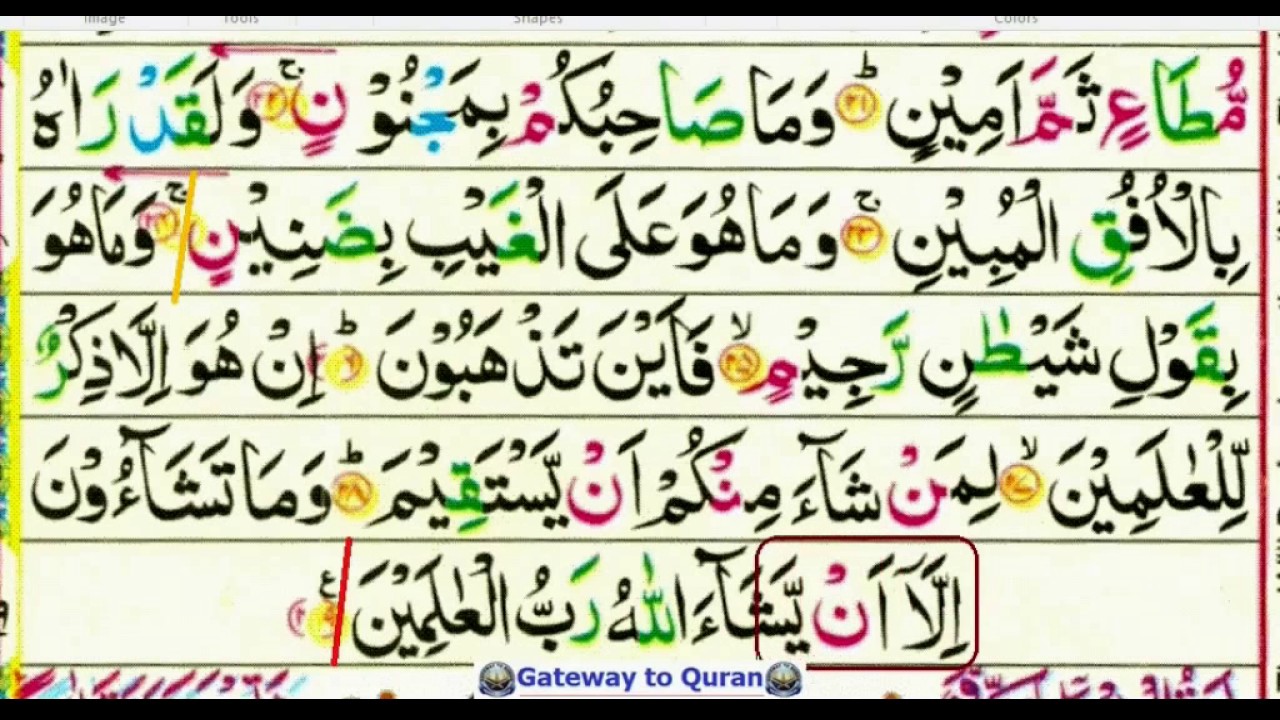 Image Tools Shapes Colors
مُّطَاعٍ ثَمَّ اَمِيْنٍ ؕ﴿۲۱﴾ وَمَا صَاحِبُكُمْ بِمَجْنُوْنٍ ۚ﴿۲۲﴾ وَلَقَدْ رَاٰهُ
بِالْاُفُقِ الْمُبِيْنِ ۚ﴿۲۳﴾ وَمَا هُوَ عَلَى الْغَيْبِ بِضَنِيْنٍ ۚ﴿۲۴﴾ وَمَا هُوَ
بِقَوْلِ شَيْطٰنٍ رَّجِيْمٍ ۙ﴿۲۵﴾ فَاَيْنَ تَذْهَبُوْنَ ؕ﴿۲۶﴾ اِنْ هُوَ اِلَّا ذِكْرٌ
لِّلْعٰلَمِيْنَ ۙ﴿۲۷﴾ لِمَنْ شَآءَ مِنْكُمْ اَنْ يَّسْتَقِيْمَ ؕ﴿۲۸﴾ وَمَا تَشَآءُوْنَ
اِلَّاۤ اَنْ يَّشَآءَ اللّٰهُ رَبُّ الْعٰلَمِيْنَ ﴿۲۹﴾ ع
Gateway to Quran